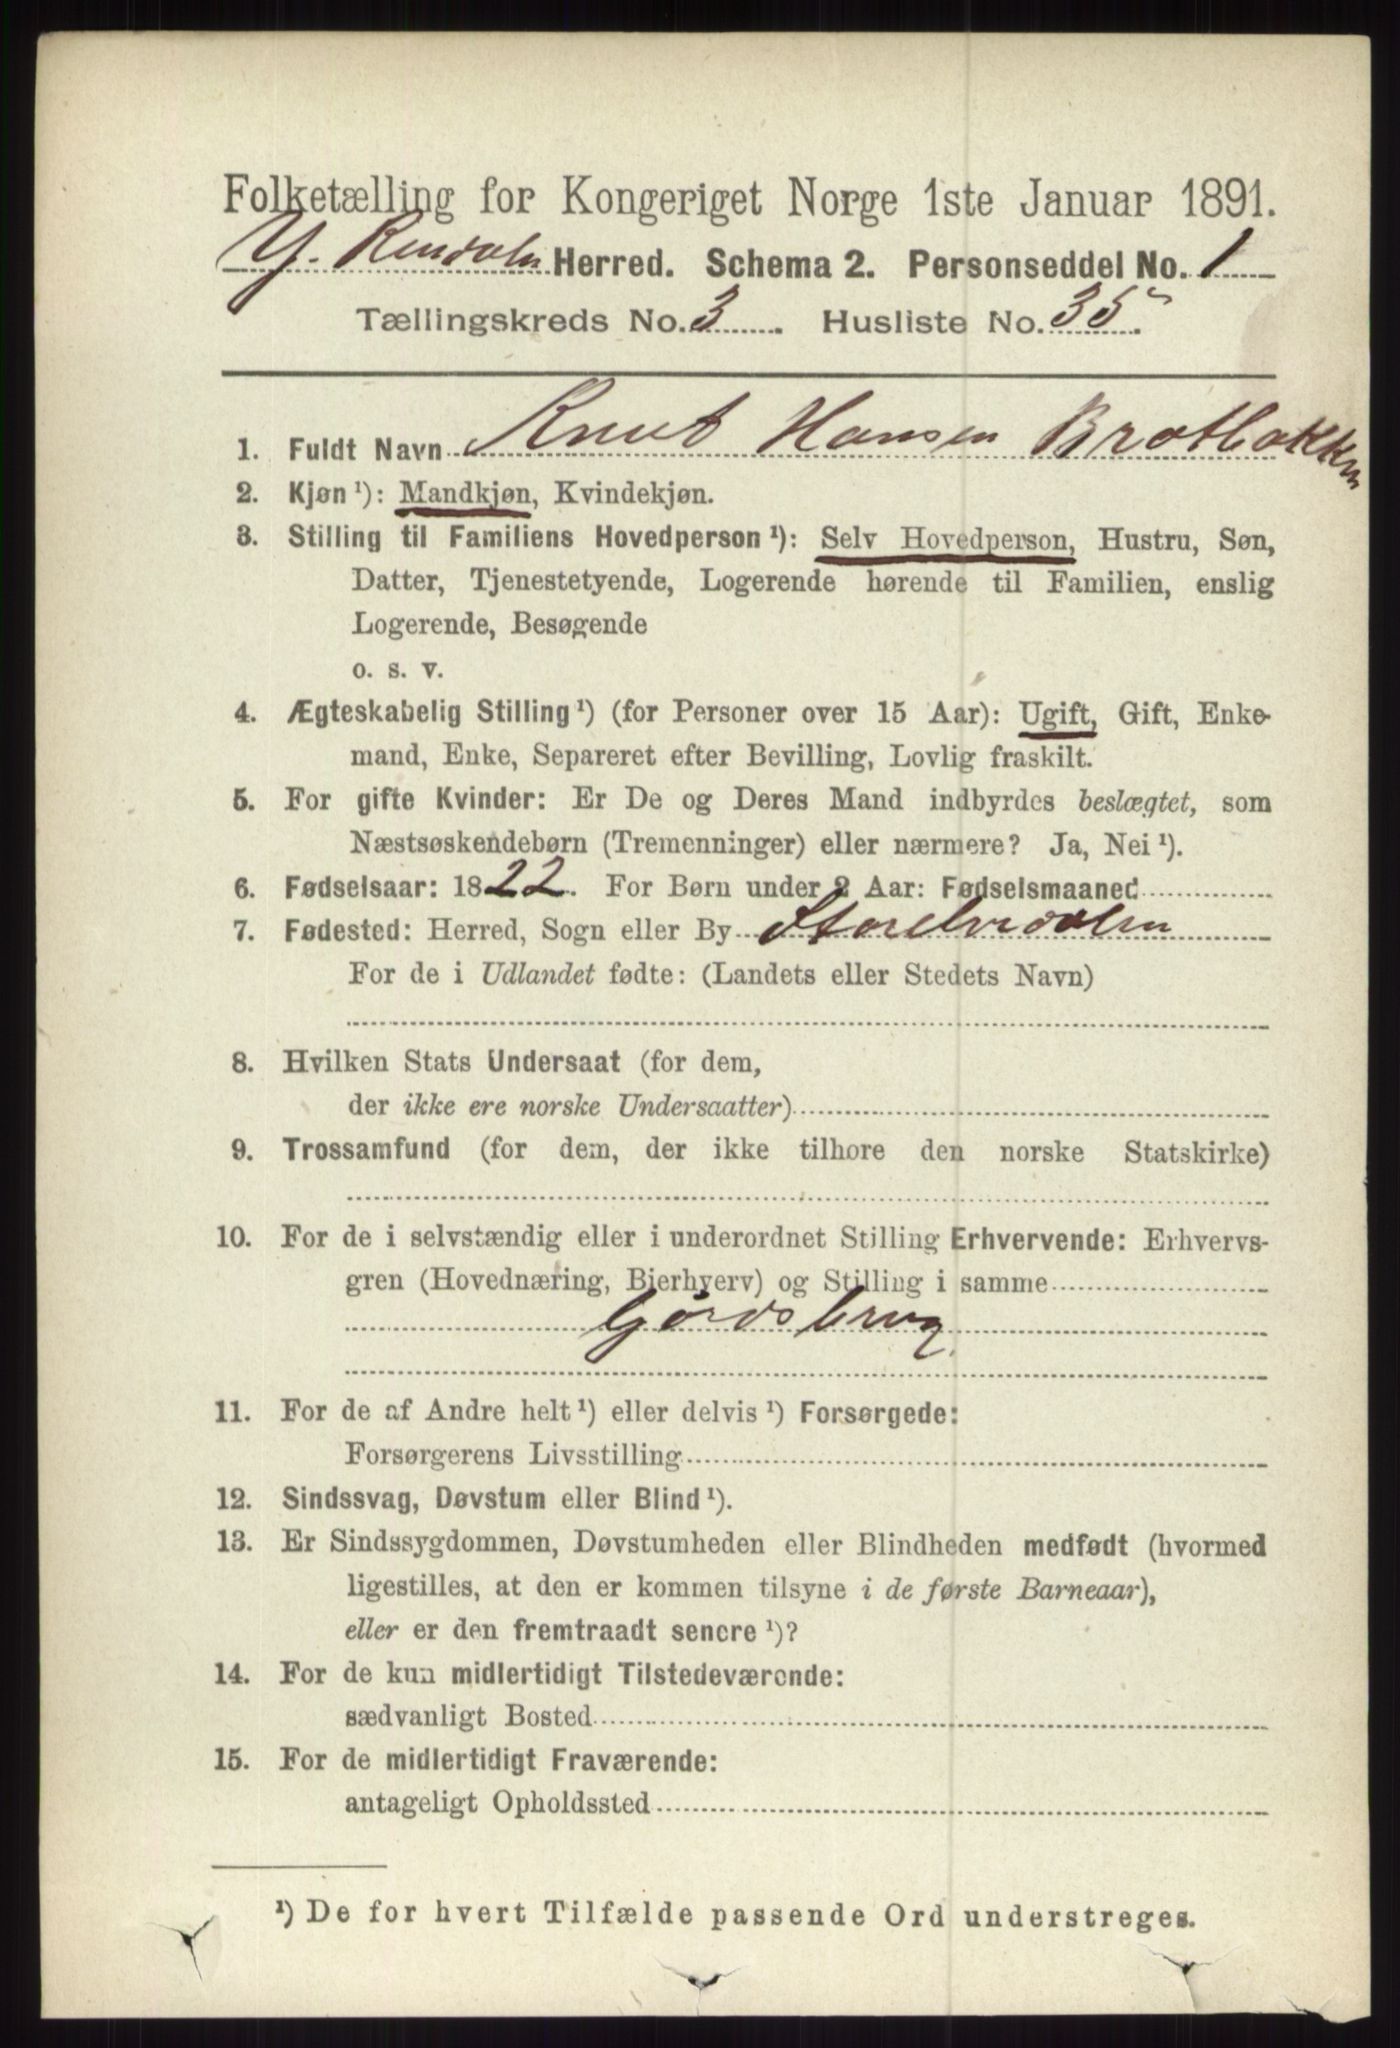 Folketælling for Kongeriget Norge 1ste Januar 1891.
Y. Rendalen Herred. Schema 2. Personseddel No. 1
Tællingskreds No. 3. Husliste No. 35.
1. Fuldt Navn Knut Hansen Bratbakken
2. Kjøn ¹): Mandkjøn, Kvindekjøn.
3. Stilling til Familiens Hovedperson ¹): Selv Hovedperson, Hustru, Søn,
Datter, Tjenestetyende, Logerende hørende til Familien, enslig
Logerende, Besøgende
o. s. v.
4. Ægteskabelig Stilling ¹) (for Personer over 15 Aar): Ugift, Gift, Enke-
mand, Enke, Separeret efter Bevilling, Lovlig fraskilt.
5. For gifte Kvinder: Er De og Deres Mand indbyrdes beslægtet, som
Næstsøskendebørn (Tremenninger) eller nærmere? Ja, Nei ¹).
6. Fødselsaar: 1822. For Børn under 2 Aar: Fødselsmaaned
7. Fødested: Herred, Sogn eller By Storelvedalen
For de i Udlandet fødte: (Landets eller Stedets Navn)
8. Hvilken Stats Undersaat (for dem,
der ikke ere norske Undersaatter)
9. Trossamfund (for dem, der ikke tilhøre den norske Statskirke)
10. For de i selvstændig eller i underordnet Stilling Erhvervende: Erhvervs-
gren (Hovednæring, Bierhverv) og Stilling i samme
Gårdsbrug
11. For de af Andre helt ¹) eller delvis ¹) Forsørgede:
Forsørgerens Livsstilling
12. Sindssvag, Døvstum eller Blind ¹).
13. Er Sindssygdommen, Døvstumheden eller Blindheden medfødt (hvormed
ligestilles, at den er kommen tilsyne i de første Barneaar),
eller er den fremtraadt senere ¹)?
14. For de kun midlertidigt Tilstedeværende:
sædvanligt Bosted
15. For de midlertidigt Fraværende:
antageligt Opholdssted
¹) De for hvert Tilfælde passende Ord understreges.